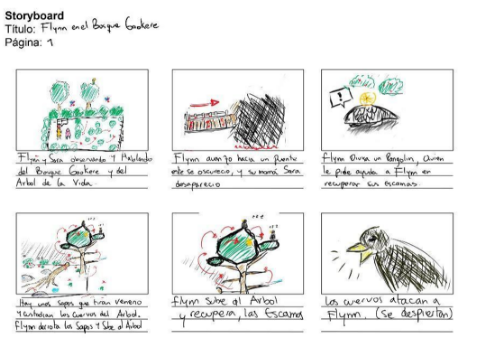 Storyboard
Título: Flynn en el Bosque Gaokere
Página: 1
Flynn y Sara observando y Hablando
del Bosque Gaokere y del
Arbol de la Vida.
Flynn avanzo hacia un Puente
este se oscurecio, y su mamá Sara
desaparecio
!
flynn Divisa un Pangolin, Quien
le pide ayuda a Flynn en
recuperar sus escamas.
Hay unos sapos que tiran veneno
y custodian los cuervos del Arbol.
Flynn derrota los Sapos y Sube al Arbol
flynn Sube al Arbol
y recupera, las Escamas
los cuervos atacan a
Flynn. (se despiertan)